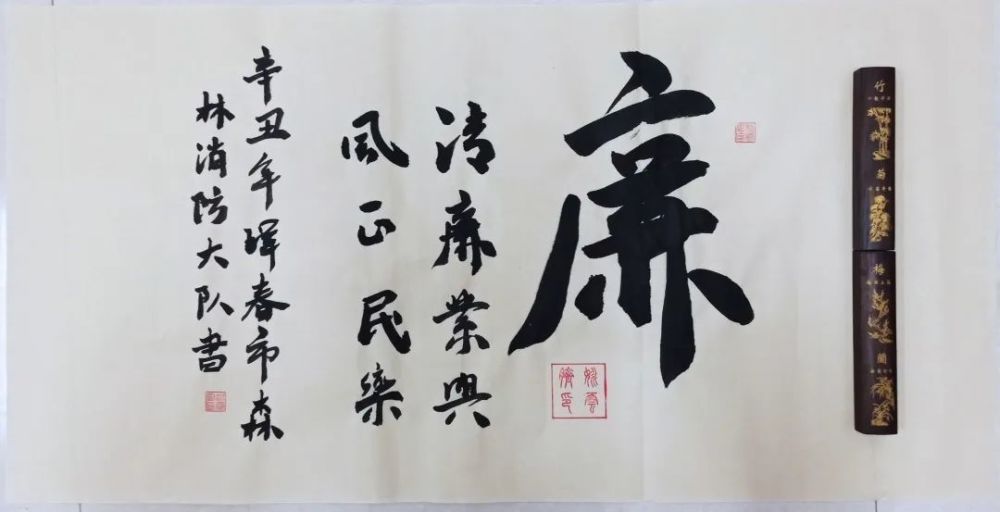 廉
清廉業興
風正民樂
辛丑年琿春市森
林消防大队書
竹
菊
梅
蘭